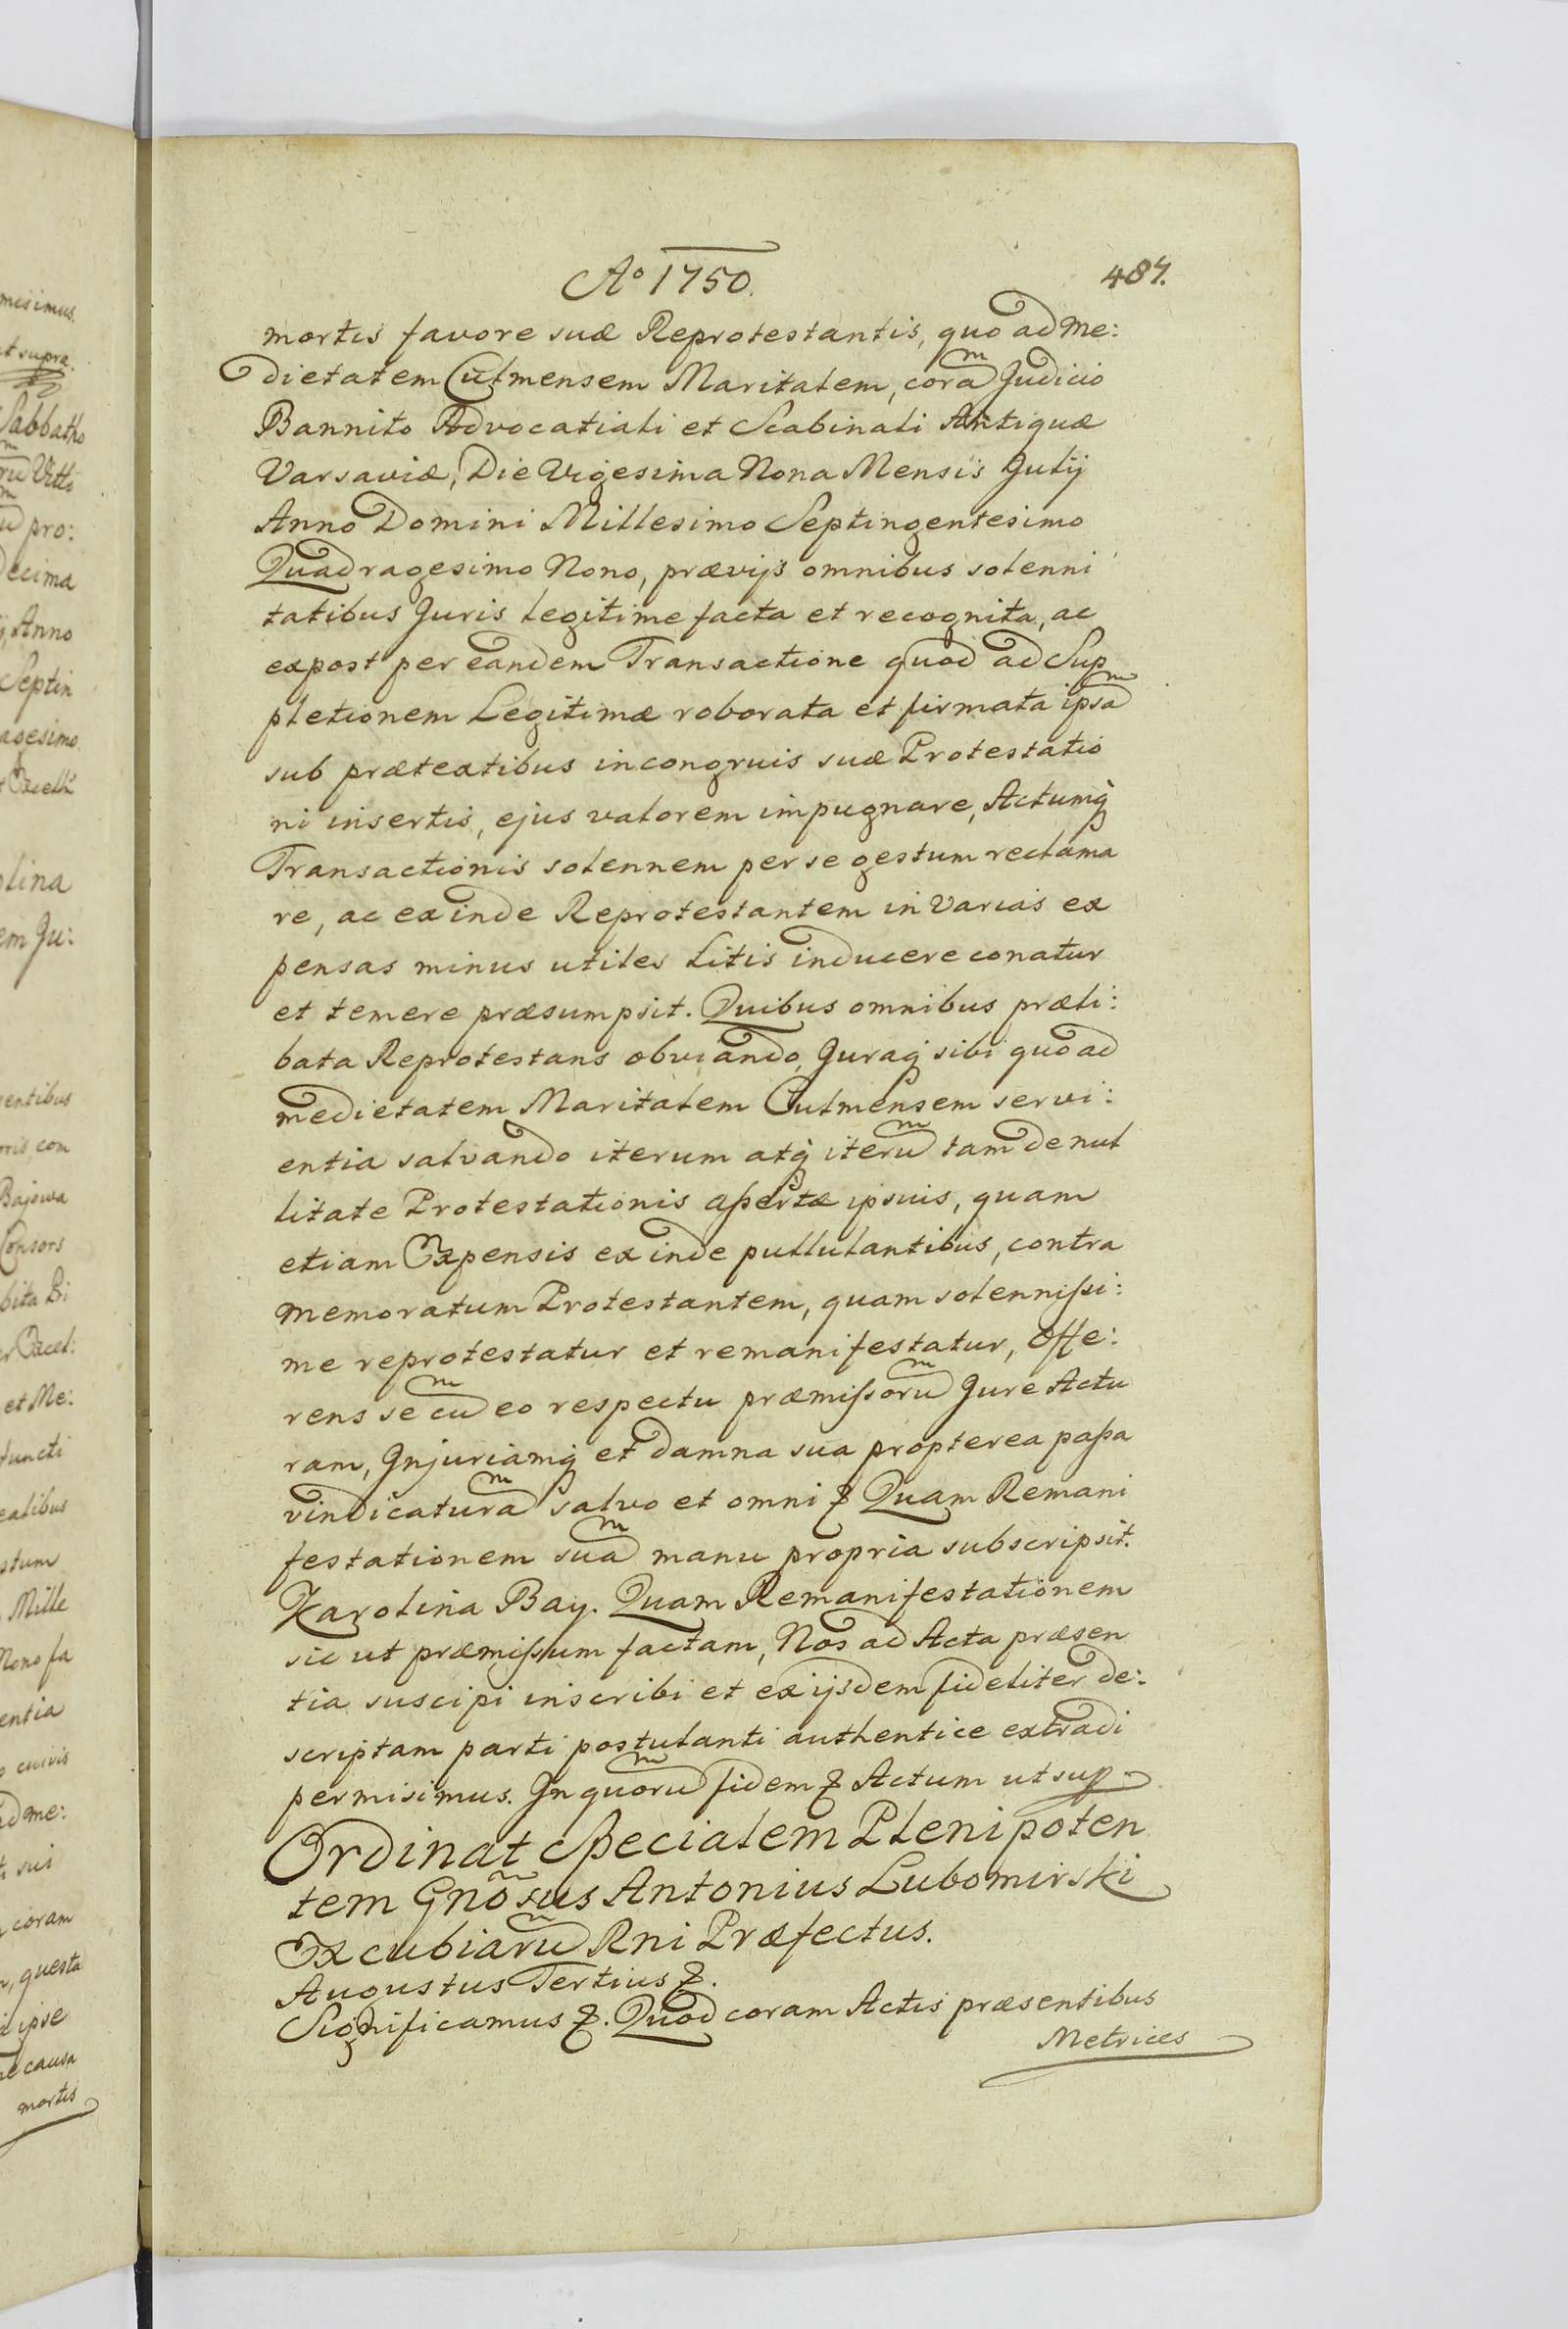 Aº 1750.
487.
mortis favore suæ Reprotestantis, quo ad Me:
dietatem Culmensem Maritalem, cora͠ Judicio
Bannito Advocatiali et Scabinali Antiquæ
Varsaviæ, Die Vigesima Nona Mensis Julij
Anno Domini Millesimo Septingentesimo
Quadragesimo Nono, prævijs omnibus solenni
tatibus Juris legitime facta et recognita, ac
expost per eandem Transactione quod ad Sup
pletionem Legitimæ roborata et firmata ipsa͠
sub prætextibus incongruis suæ Protestatio
ni insertis, ejus valorem impugnare, Actumq̃
Transactionis solennem per se gestum reclama
re, ac exinde Reprotestantem in Varias ex
pensas minus utiles Litis inducere conatur
et temere præsumpsit. Quibus omnibus præli:
bata Reprotestans obviando, Juraq̃ sibi quo ad
medietatem Maritalem Culmensem servi:
entia salvando iterum atq̃ iteru͠ tam de nul
litate Protestationis assertæ ipsuis, quam
etiam Expensis exinde pullulantibus, contra
Memoratum Protestantem, quam solennissi:
me reprotestatur et remanifestatur, Offe:
rens se cu͠ eo respectu præmissoru͠ Jure Actu
ram, Injuriamq̃ et damna sua propterea passa
vindicatura͠ salvo et omni &. Quam Remani
festationem sua͠ manu propria subscripsit.
Karolina Bay. Quam Remanifestationem
sic ut præmissum factam, Nos ad Acta præsen
tia suscipi inscribi et ex ijsdem fideliter de:
scriptam parti postulanti authentice extradi
permisimus. In quoru͠ fidem & Actum ut sup
Ordinat Specialem Plenipoten
tem Gnõsus Antonius Lubomirski
Excubiaru͠ Rni Præfectus.
Augustus Tertius &.
Significamus &. Quod coram Actis præsentibus
Metrices
misimus.
ut supra.
Sabbatho
pro:
decima
Anno
Septin
agesimo
lina
em Ju:
sentibus
com
Bajowa
Consors
bita
et Me:
functi
stum
Mille
Nono fa
entia
cuivis
ad me:
sui
coram
questa
ipse
causa
mortis